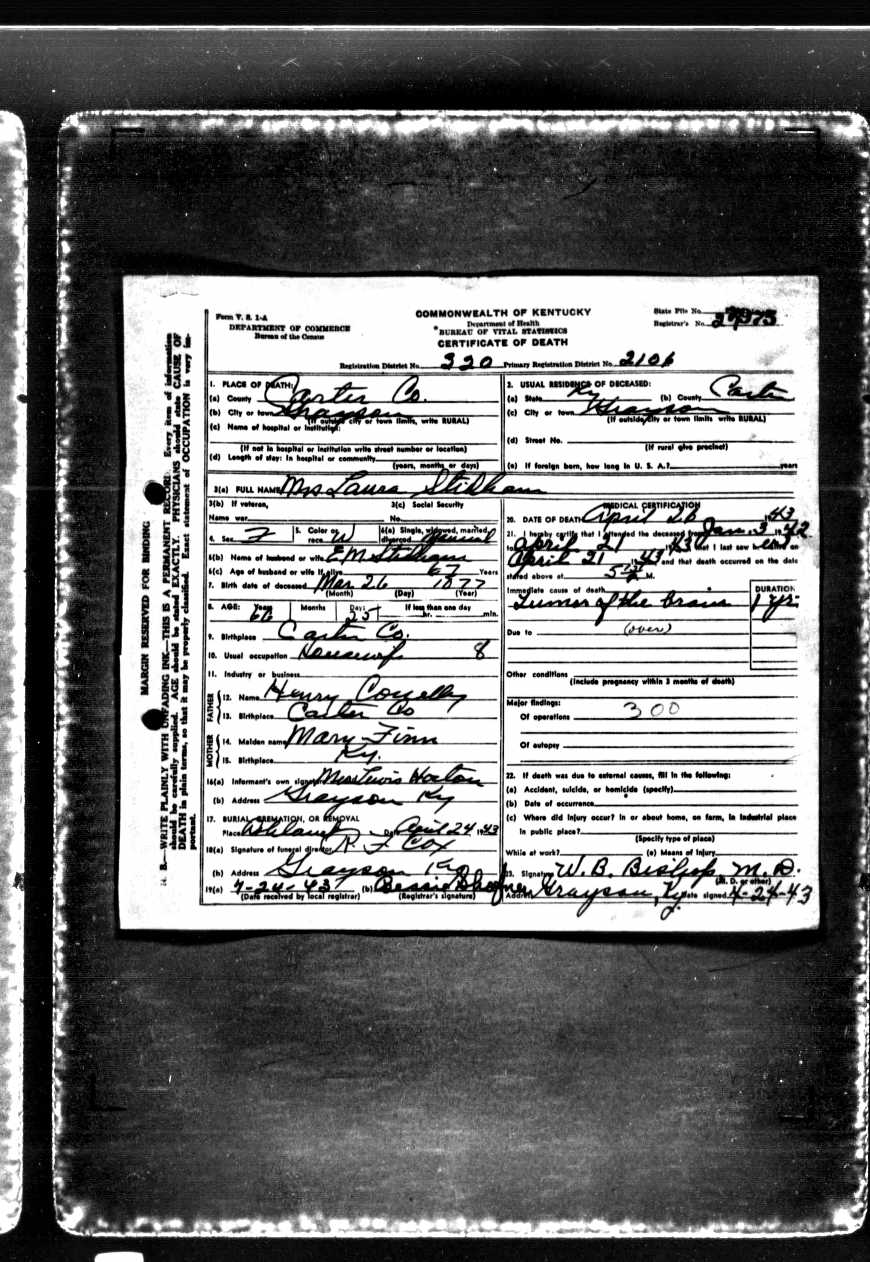 Form V. S. 1-A
DEPARTMENT OF COMMERCE
Bureau of the Census
COMMONWEALTH OF KENTUCKY
Department of Health
BUREAU OF VITAL STATISTICS
CERTIFICATE OF DEATH
State File No.
Registrar's No.
Registration District No. 320 Primary Registration District No. 2106
MARGIN RESERVED FOR BINDING
N. B.—WRITE PLAINLY WITH UNFADING INK—THIS IS A PERMANENT RECORD. Every item of information
should be carefully supplied. AGE should be stated EXACTLY. PHYSICIANS should state CAUSE OF
DEATH in plain terms, so that it may be properly classified. Exact statement of OCCUPATION is very im-
portant.
1. PLACE OF DEATH:
(a) County Carter Co.
(b) City or town Grayson
(If outside city or town limits, write RURAL)
(c) Name of hospital or institution:
(If not in hospital or institution write street number or location)
(d) Length of stay: In hospital or community
(years, months, or days)
2. USUAL RESIDENCE OF DECEASED:
(a) State Ky (b) County Carter
(c) City or town Grayson
(If outside city or town limits write RURAL)
(d) Street No.
(If rural give precinct)
(e) If foreign born, how long in U. S. A.? years
3(a) FULL NAME Mrs Laura Stidham
3(b) If veteran,
Name war
3(c) Social Security
No.
4. Sex F 5. Color or race W 6(a) Single, widowed, married, divorced Married
6(b) Name of husband or wife E M Stidham
6(c) Age of husband or wife if alive 67 Years
7. Birth date of deceased Mar 26 1877
(Month) (Day) (Year)
8. AGE: Years 66 Months Days 25 If less than one day
hr. min.
9. Birthplace Carter Co.
10. Usual occupation Housewife 8
11. Industry or business
FATHER
12. Name Henry Connelley
13. Birthplace Carter Co
MOTHER
14. Maiden name Mary Finn
15. Birthplace Ky.
16(a) Informant's own signature Mrs Lewis Horton
(b) Address Grayson Ky
17. BURIAL, CREMATION, OR REMOVAL
Place Ashland Date April 24 1943
18(a) Signature of funeral director R F Cox
(b) Address Grayson Ky
19(a) 4-24-43 (b) Bessie Shafner
(Date received by local registrar) (Registrar's signature)
MEDICAL CERTIFICATION
20. DATE OF DEATH April 1943
21. I hereby certify that I attended the deceased from Jan. 3 1942
to April 21 1943 that I last saw her alive on
April 21 1943 and that death occurred on the date
stated above at M.
Immediate cause of death DURATION
Tumor of the brain 1 yr
Due to (over)
Other conditions
(Include pregnancy within 3 months of death)
Major findings:
Of operations 300
Of autopsy
22. If death was due to external causes, fill in the following:
(a) Accident, suicide, or homicide (specify)
(b) Date of occurrence
(c) Where did injury occur? In or about home, on farm, in industrial place
in public place?
(Specify type of place)
While at work? (e) Means of Injury
23. Signature W. B. Bishop, M. D.
(M. D. or other)
Address Grayson, Ky. Date signed 4-24-43